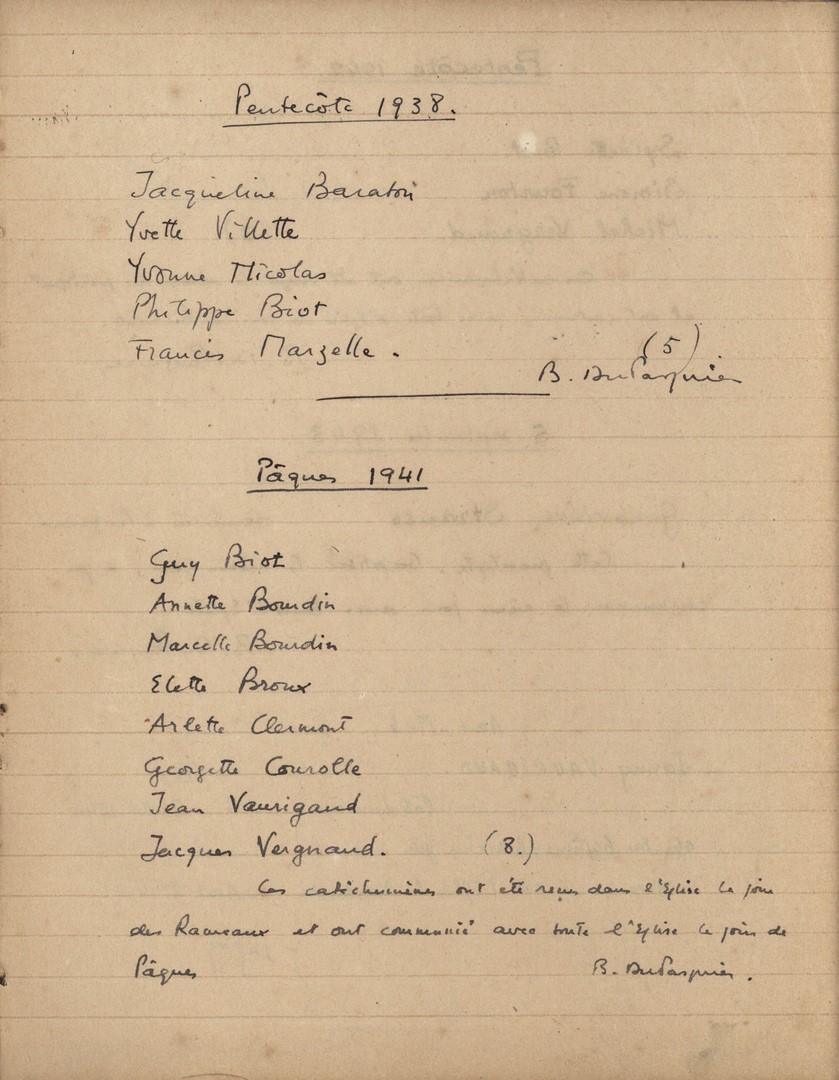 Pentecôte 1938.
Jacqueline Baraton
Yvette Villette
Yvonne Nicolas
Philippe Biot
Francis Marzelle.
(5)
B. DuPasquier
Pâques 1941
Guy Biot
Annette Bourdin
Marcelle Bourdin
Elette Broux
Arlette Clermont
Georgette Courolle
Jean Vaurigaud
Jacques Vergnaud. (8.)
Ces catéchumènes ont été reçus dans l'Eglise le jour
des Rameaux et ont communié avec toute l'Eglise le jour de
Pâques B. DuPasquier.